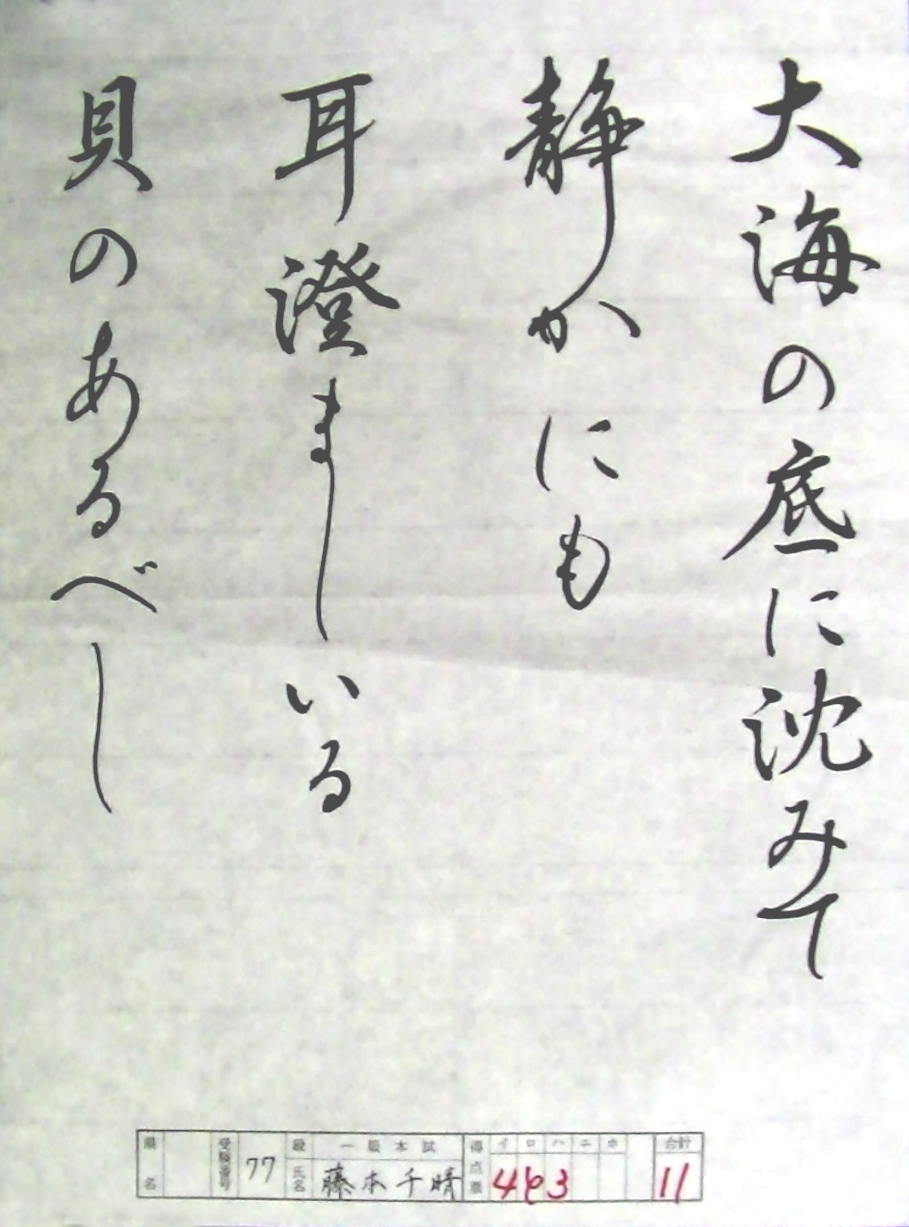 大海の底に沈みて
静かにも
耳澄ましいる
貝のあるべし
県名
受験番号 77
段 一級本試
氏名 藤本千晴
得点 イロハニホ
4 3
合計 11